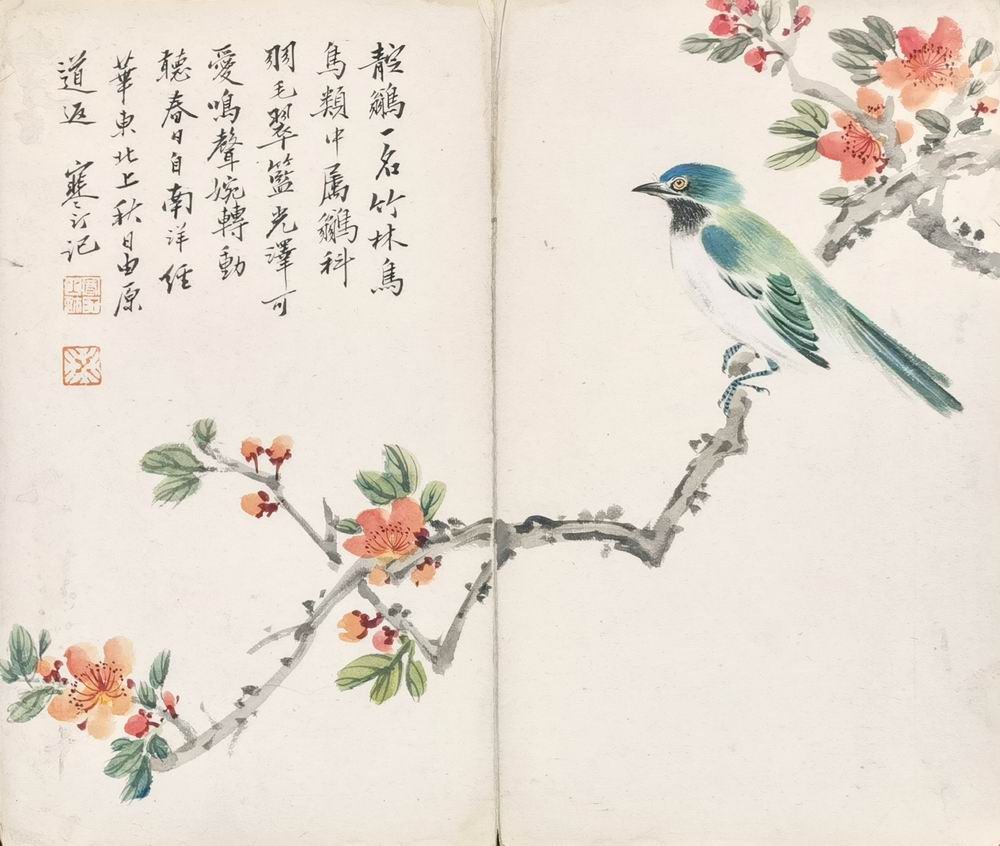 靛鶲一名竹林鳥
鳥類中属鶲科
羽毛翠籃光澤可
愛鳴聲婉轉動
聽春日自南洋經
華東北上秋日由原
道返 寒汀記